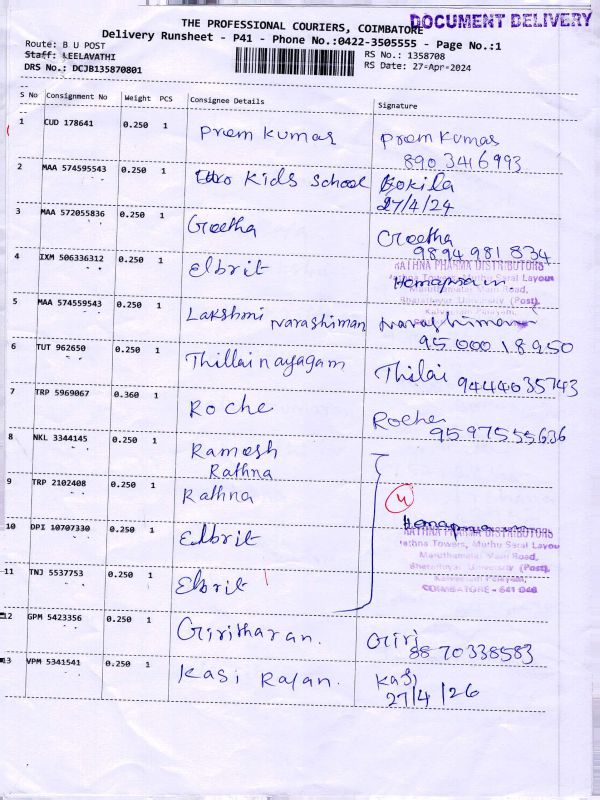 THE PROFESSIONAL COURIERS, COIMBATORE
DOCUMENT DELIVERY
Delivery Runsheet - P41 - Phone No.:0422-3505555 - Page No.:1
Route: B U POST
RS No.: 1358708
Staff: LEELAVATHI
RS Date: 27-Apr-2024
DRS No.: DCJB135870801
S No Consignment No Weight PCS Consignee Details Signature
1 CUD 178641 0.250 1 Prem Kumar Prem Kumar
8903416993
2 MAA 574595543 0.250 1 Euro Kids School Kokila
27/4/24
3 MAA 572055836 0.250 1 Geetha Geetha
9894981834
4 IXM 506336312 0.250 1 Elbrit
RATHNA PHARMA DISTRIBUTORS
Rathna Towers, Muthu Saral Layout
Maruthamalai Main Road,
Bharathiyar University (Post),
5 MAA 574559543 0.250 1 Lakshmi Narashiman Narashiman
9500018950
6 TUT 962650 0.250 1 Thillainayagam Thilai 9444035743
7 TRP 5969067 0.360 1 Roche Roche
9597555636
8 NKL 3344145 0.250 1 Ramesh
Rathna
9 TRP 2102408 0.250 1 Rathna
4
10 DPI 10707330 0.250 1 Elbrit
RATHNA PHARMA DISTRIBUTORS
Rathna Towers, Muthu Saral Layou
Maruthamalai Main Road,
Bharathiyar University (Post),
COIMBATORE - 641 046
11 TNJ 5537753 0.250 1 Elbrit
12 GPM 5423356 0.250 1 Giritharan. Giri
8870338583
13 VPM 5341541 0.250 1 Kasi Rajan. Kasi
27/4/26